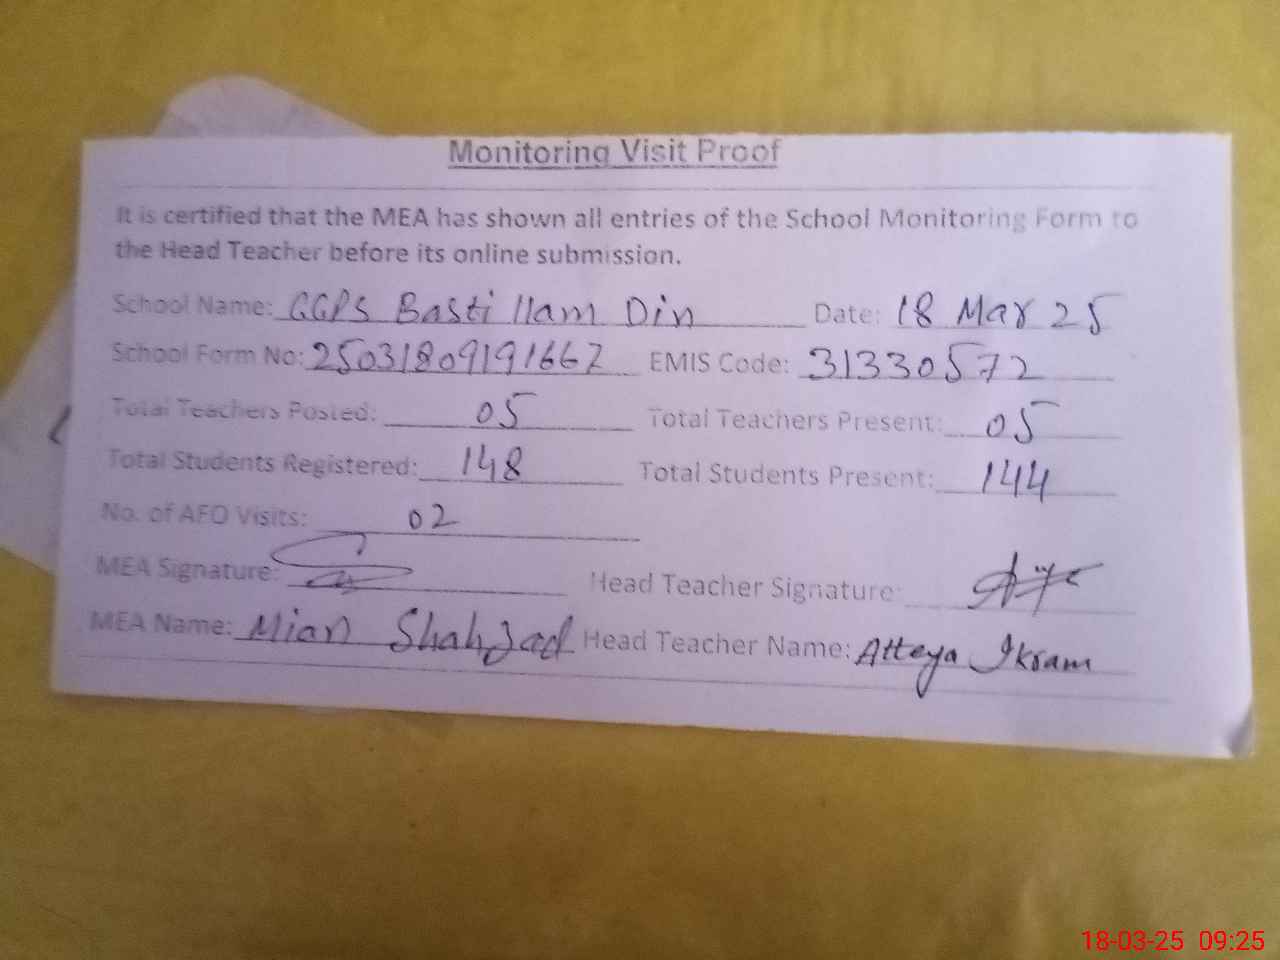 Monitoring Visit Proof
It is certified that the MEA has shown all entries of the School Monitoring Form to
the Head Teacher before its online submission.
School Name: GGPS Basti Ilam Din Date: 18 Mar 25
School Form No: 25031809191667 EMIS Code: 31330572
Total Teachers Posted: 05 Total Teachers Present: 05
Total Students Registered: 148 Total Students Present: 144
No. of AEO Visits: 02
MEA Signature: Head Teacher Signature:
MEA Name: Mian Shahzad Head Teacher Name: Atteya Ikram
18-03-25 09:25